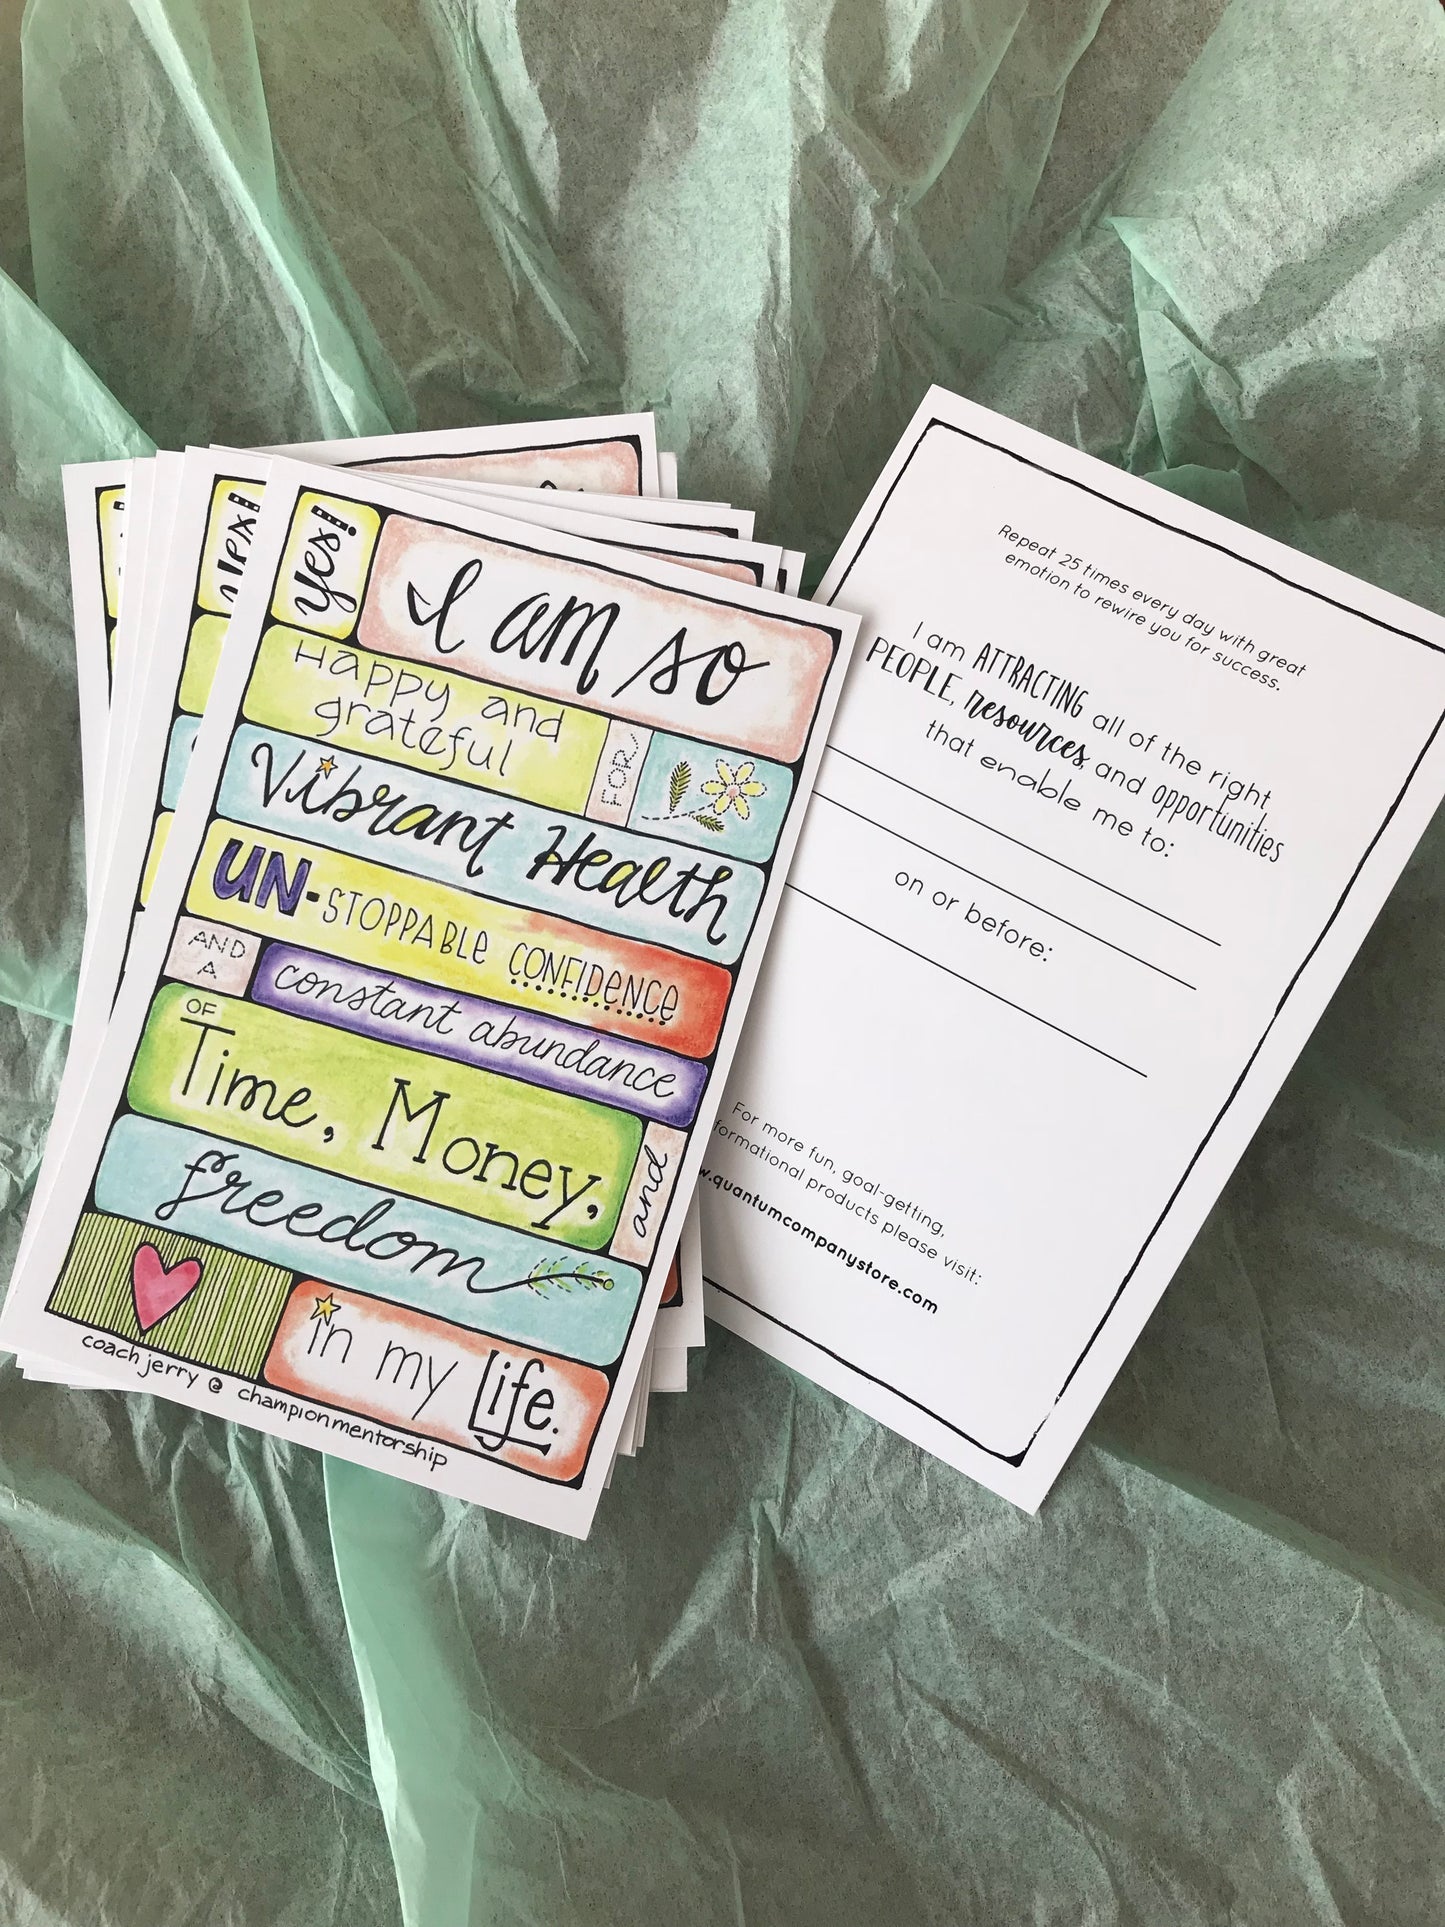 Yes!
I am so
Happy and
grateful
FOR/
Vibrant Health
UN-STOPPABLE CONFIDENCE
AND
A
constant abundance
OF
Time, Money,
and
freedom
in my Life.
coach jerry @ championmentorship
Repeat 25 times every day with great
emotion to rewire you for success.
I am ATTRACTING all of the right
PEOPLE, resources, and opportunities
that enable me to:
on or before:
For more fun, goal-getting,
products please visit:
quantumcompanystore.com
Yes!